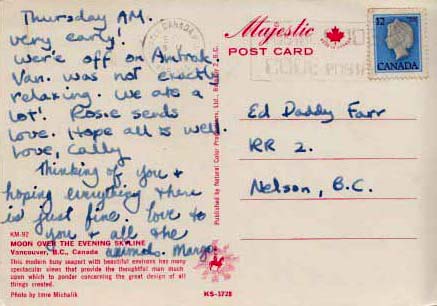 Thursday AM.
very early!
We're off on Amtrak.
Van. was not exactly
relaxing. We ate a
lot! Rosie sends
love. Hope all is well.
Love, Cally
Thinking of you &
hoping everything there
is just fine. love to
you & all the
animals. Margo
KM-92
MOON OVER THE EVENING SKYLINE
Vancouver, B.C., Canada
This modern busy seaport with beautiful environs has many
spectacular views that provide the thoughtful man much
upon which to ponder concerning the great design of all
things created.
Photo by Imre Michalik
Published by Natural Color Productions Ltd., 2, B.C.
Majestic
POST CARD
KS-3728
CANADA
12
CANADA
Ed Daddy Farr
RR 2.
Nelson, B.C.